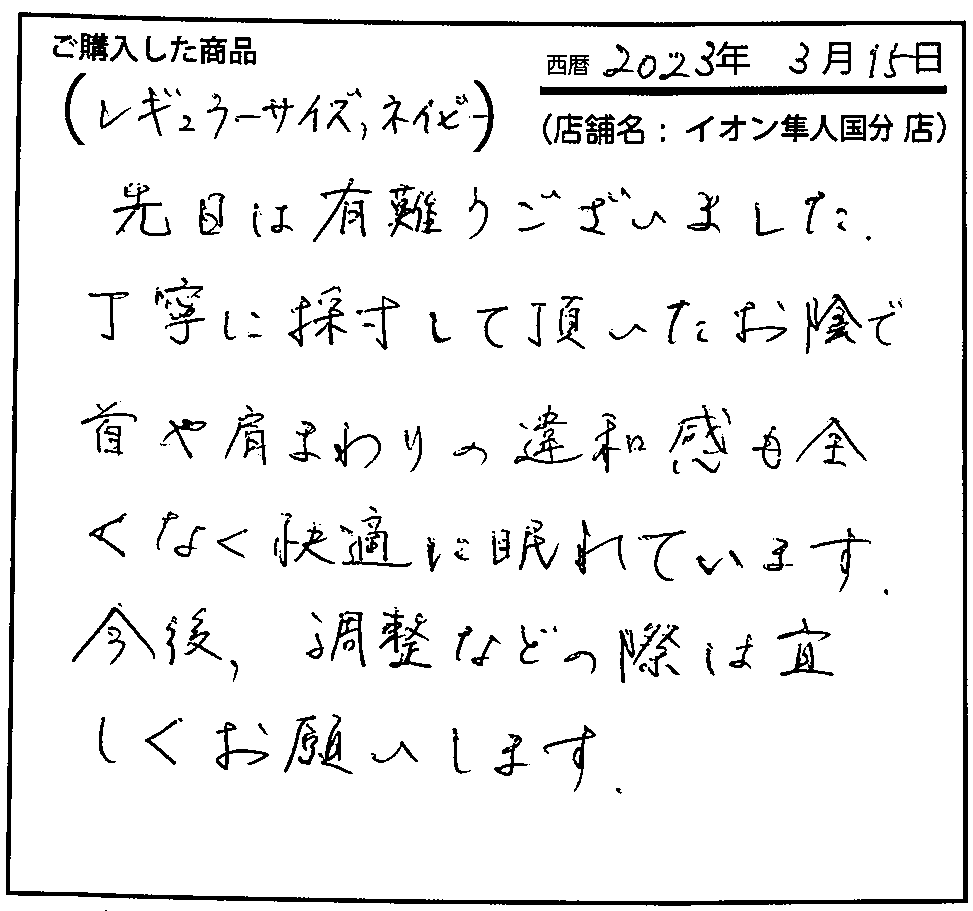 ご購入した商品
西暦 2023年 3月15日
(レギュラーサイズ,ネイビー)
(店舗名：イオン隼人国分 店)
先日は有難うございました.
丁寧に採寸して頂いたお陰で
首や肩まわりの違和感も全
くなく快適に眠れています.
今後,調整などの際は宜
しくお願いします.